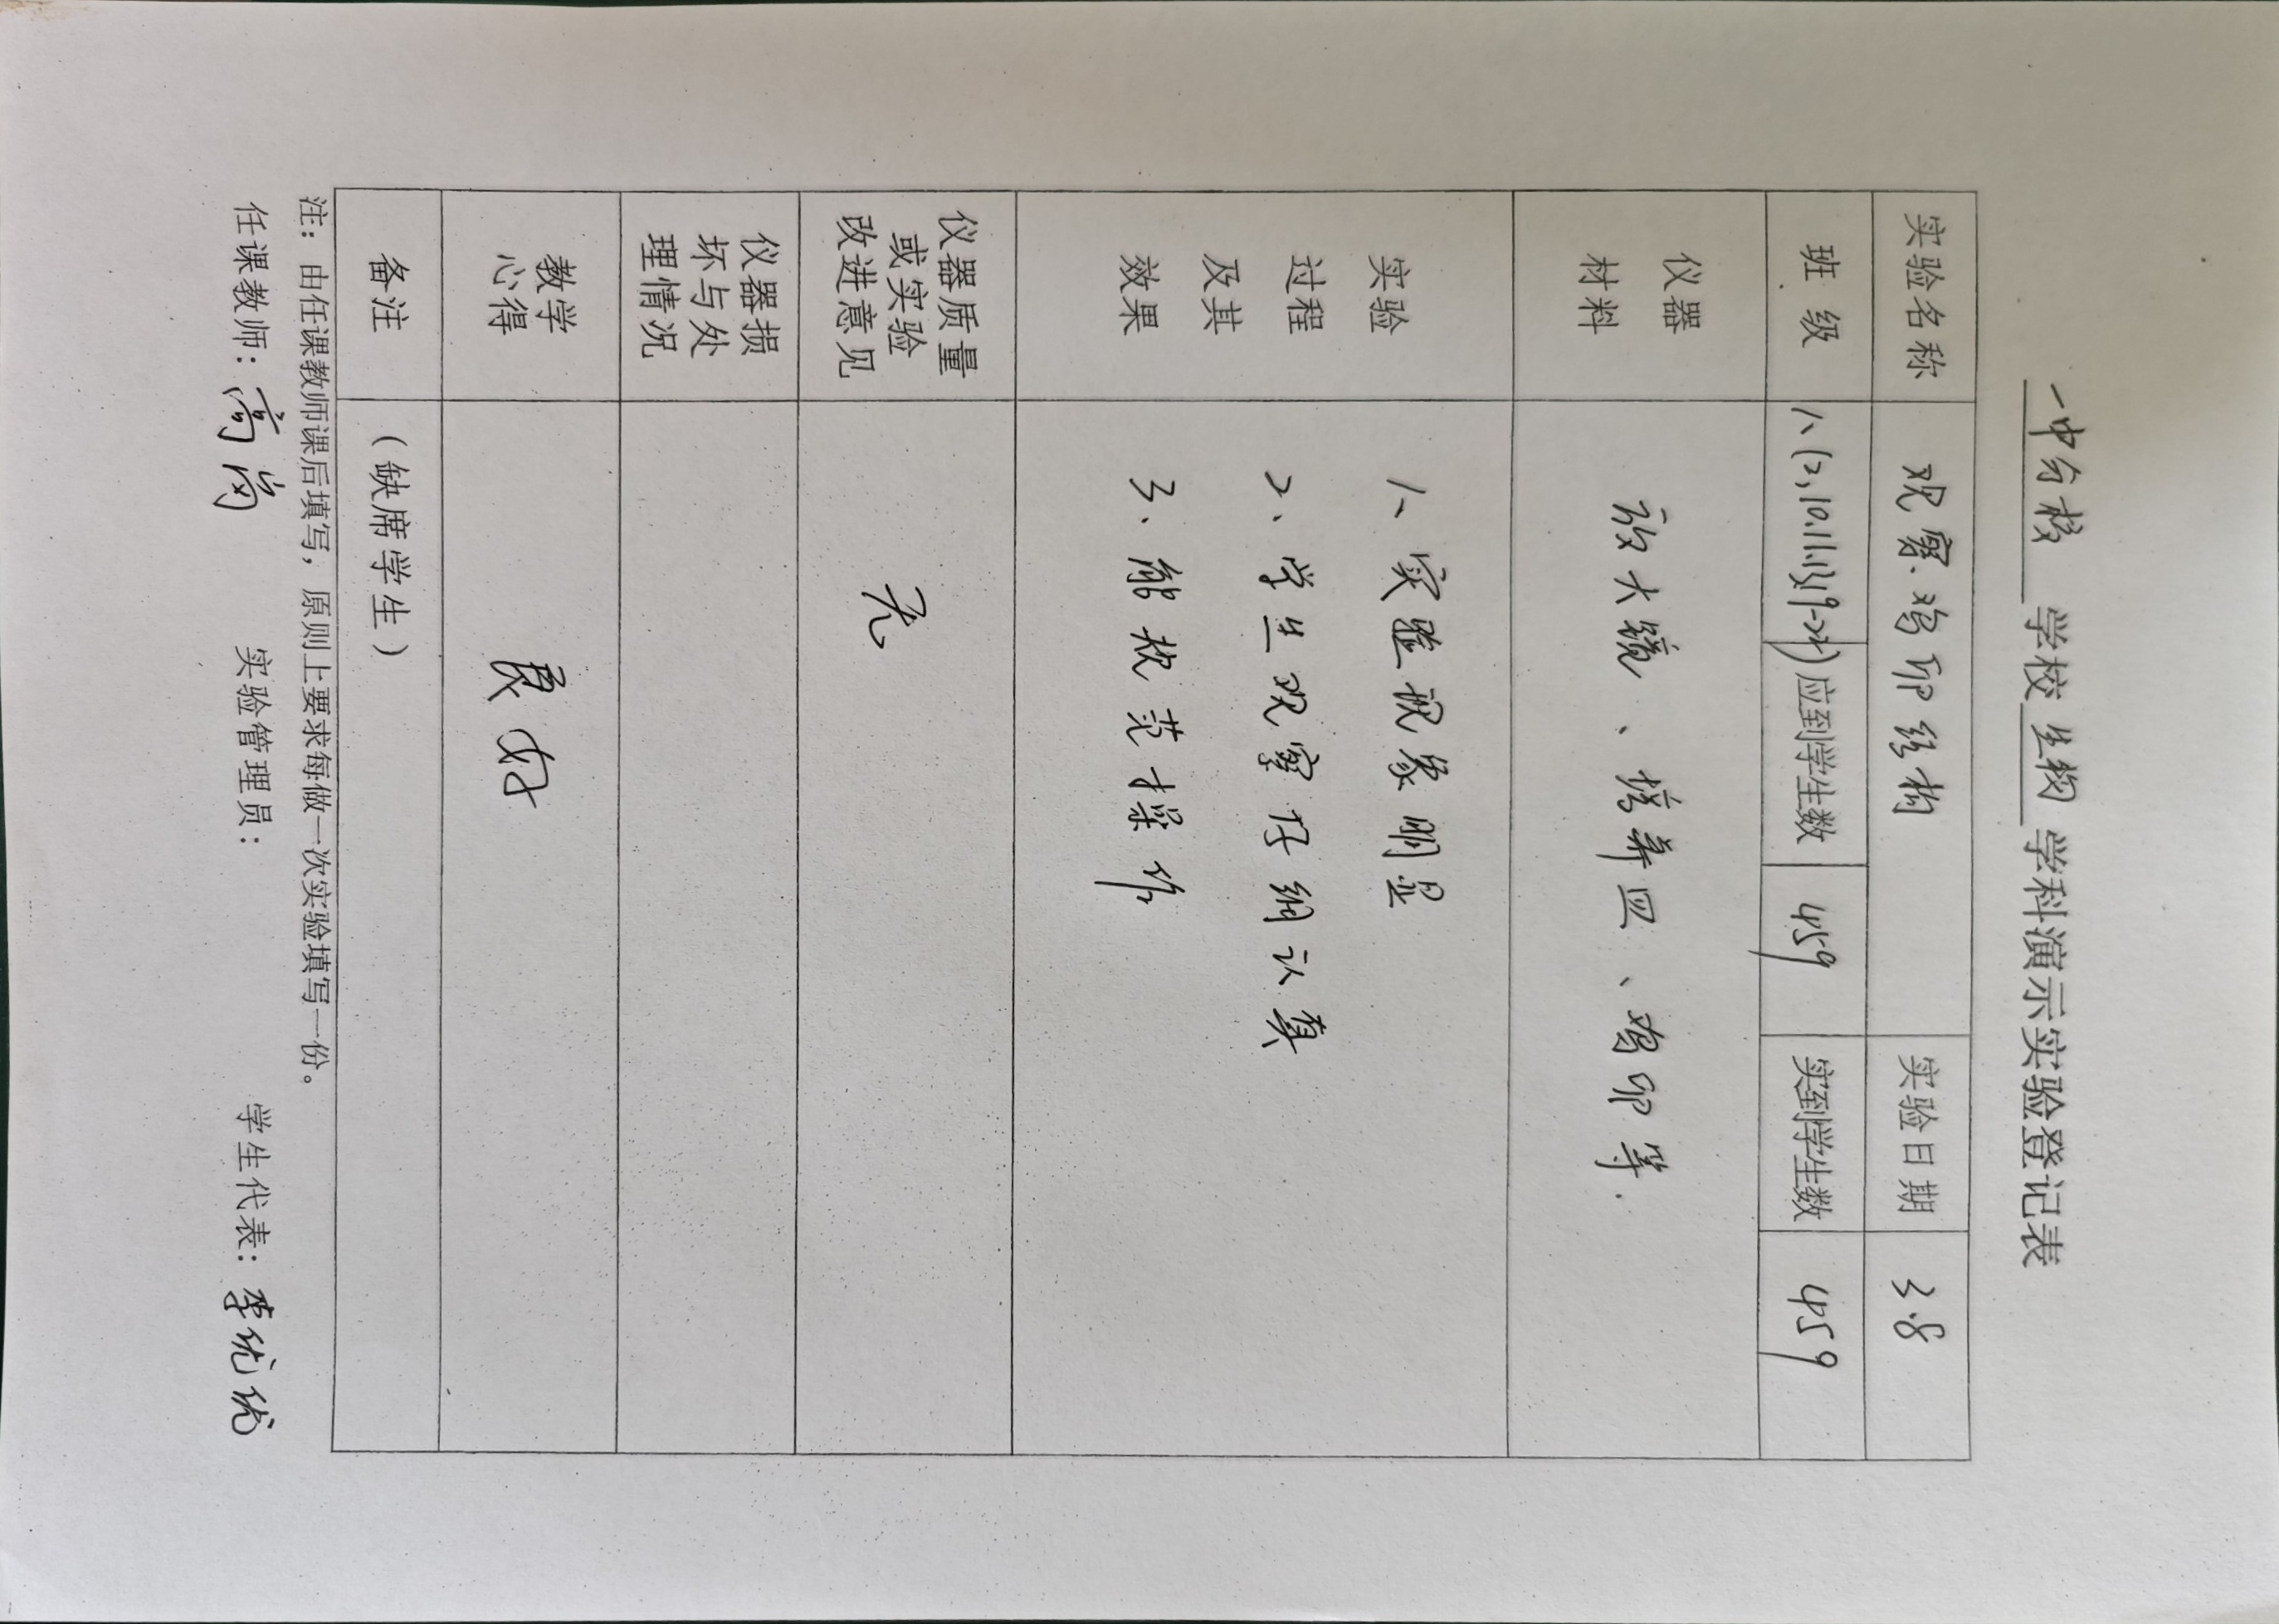 一中分校 学校 生物 学科演示实验登记表
实验名称 观察鸡卵结构 实验日期 3.8
班级 八(2,10,11,13,19-22) 应到学生数 459 实到学生数 459
仪器
材料
放大镜、培养皿、鸡卵等.
实验
过程
及其
效果
1、实验现象明显
2、学生观察仔细认真
3、能规范操作
仪器质量
或实验
改进意见
无
仪器损
坏与处
理情况
教学
心得
良好
备注 (缺席学生)
注：由任课教师课后填写，原则上要求每做一次实验填写一份。
任课教师：高岗 实验管理员： 学生代表：李优优